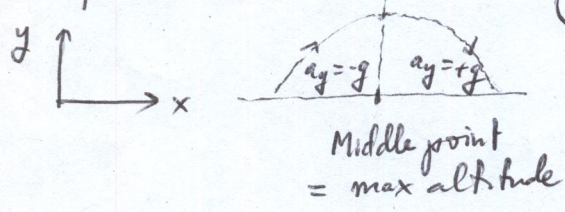 y
x
ay=-g
ay=+g
Middle point
= max altitude